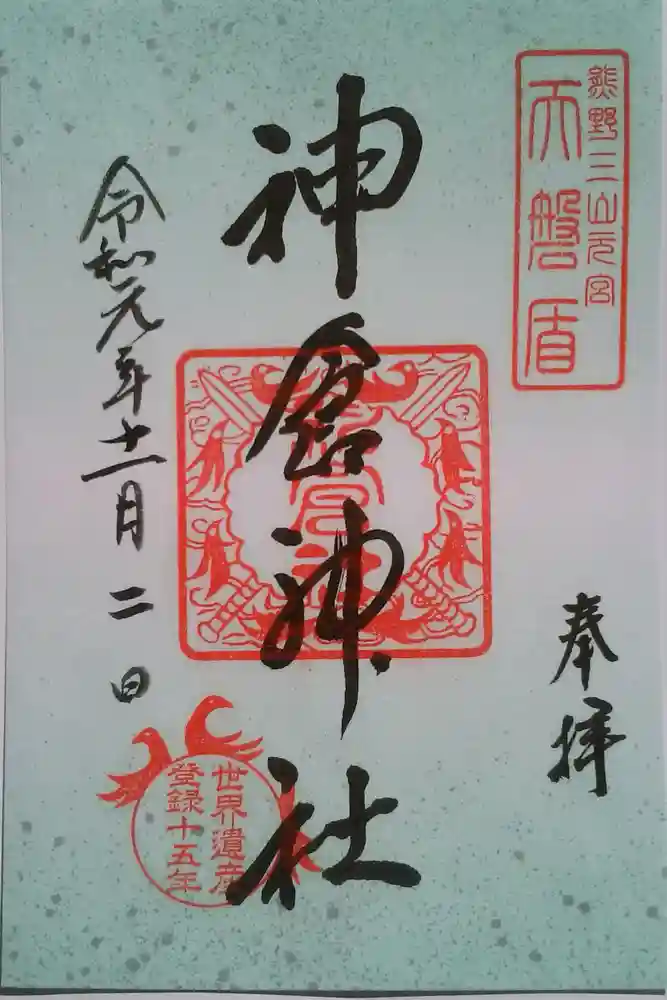 熊野三山元宮
天磐盾
奉拝
神倉神社
令和元年十一月二日
世界遺産
登録十五年